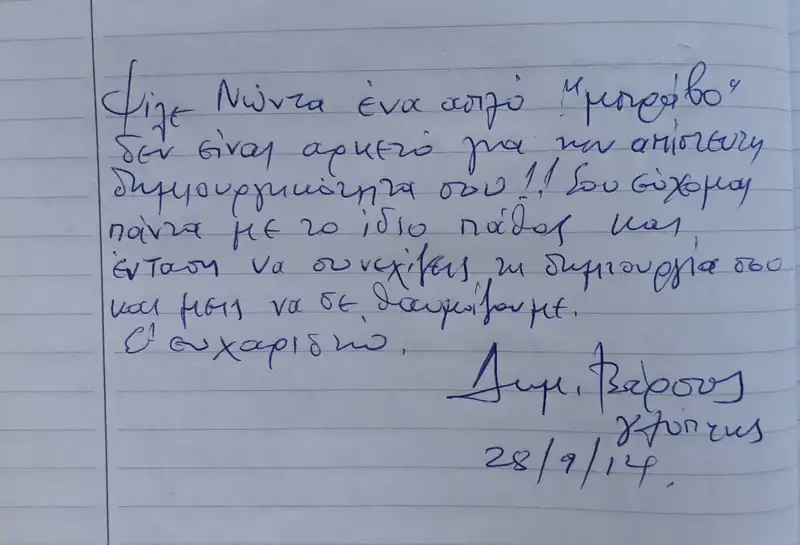 Φίλε Νώντα ένα απλό "μπράβο"
δεν είναι αρκετό για την απίστευτη
δημιουργικότητα σου!! Σου εύχομαι
πάντα με το ίδιο πάθος και
ένταση να συνεχίζεις τη δημιουργία σου
και μεις να σε θαυμάζουμε.
Σ' ευχαριστώ.
Δημ. Βάρσος
γλύπτης
28/9/14.